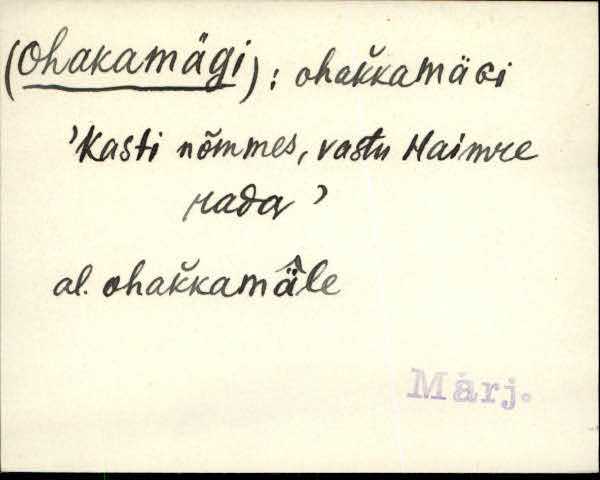 (Ohakamägi) : ohak̆kamäɢi
'Kasti nõmmes, vastu Haimre
rada'
al. ohak̆kamä̂le
Märj.